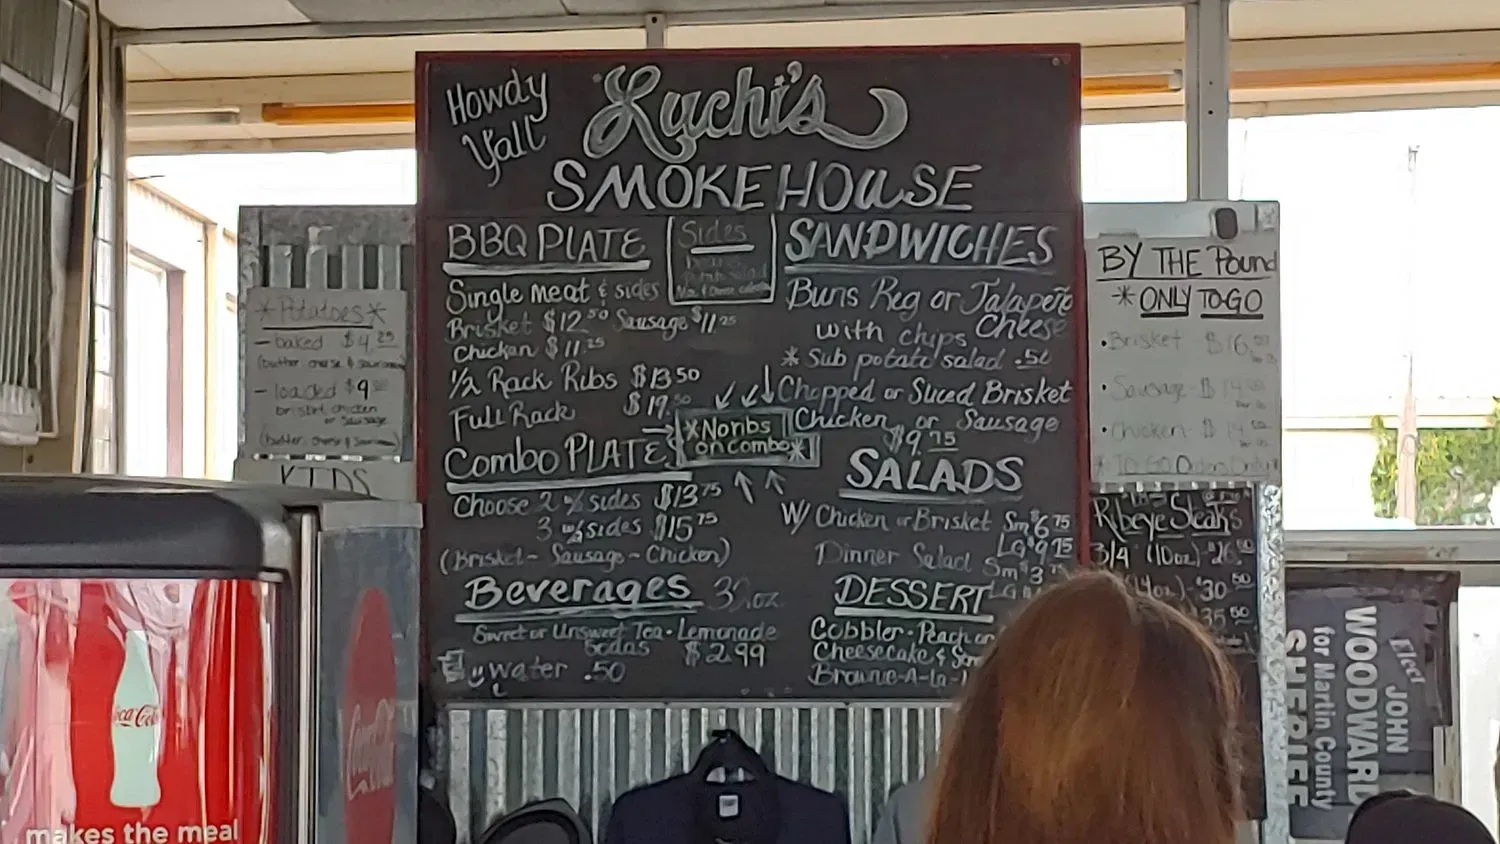 Howdy
Y'all
Luchi's
SMOKEHOUSE
BBQ PLATE
Single meat & sides
Brisket $12.50 Sausage $11.25
Chicken $11.25
1/2 Rack Ribs $13.50
Full Rack $19.50
Combo PLATES
Choose 2 w/ sides $13.75
3 w/ sides $15.75
(Brisket - Sausage - Chicken)
Beverages 32oz
Sweet or Unsweet Tea • Lemonade
Sodas $2.99
water .50
Sides
Beans
Potato Salad
*No ribs
on combo*
SANDWICHES
Buns Reg or Jalapeño
Cheese
with chips
* Sub potato salad .50
Chopped or Sliced Brisket
Chicken or Sausage
$9.75
SALADS
W/ Chicken or Brisket Sm $6.75
Lg $9.75
Dinner Salad Sm $3.
DESSERT
Cobbler • Peach or
Cheesecake &
Brownie-A-La-
*Potatoes*
- baked $4.25
- loaded $9
brisket, chicken
or sausage
KIDS
BY THE Pound
* ONLY TO GO
• Brisket $16.
• Sausage $
• Chicken $
* TO GO Orders Only
Ribeye Steaks
3/4 (10oz) $26.50
(14oz) - $30.50
35.50
Elect
JOHN
WOODWARD
for Martin County
SHERIFF
Coca-Cola
makes the meal
Coca-Cola